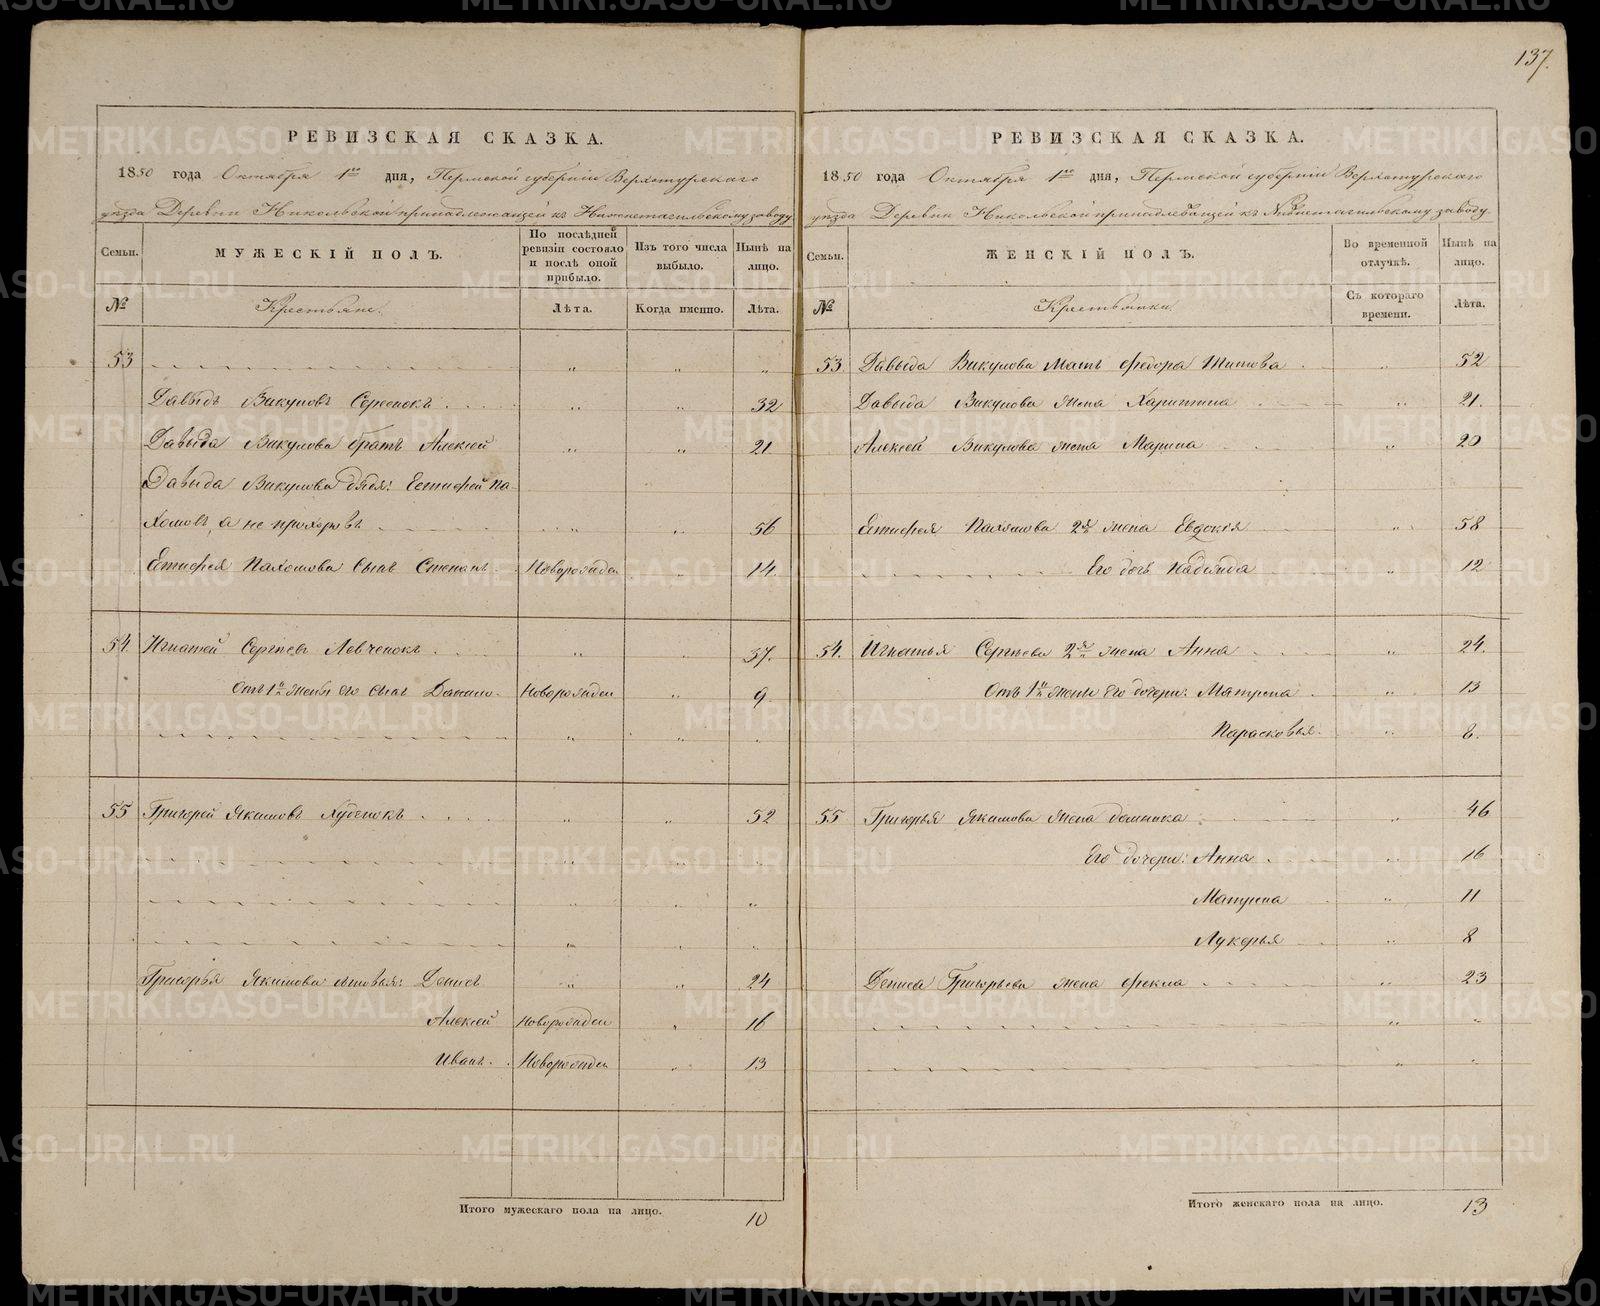 137.
РЕВИЗСКАЯ СКАЗКА.
1850 года Октября 1го дня, Пермской губернии Верхотурскаго
уѣзда Деревни Никольской принадлежащей къ Нижнетагильскому заводу
Семьи. МУЖЕСКІЙ ПОЛЪ. По послѣдней ревизіи состояло и послѣ оной прибыло. Изъ того числа выбыло. Нынѣ на лицо.
№ Крестьяне. Лѣта. Когда именно. Лѣта.
53 „ „ „
Давыдъ Викуловъ „ „ 32
Давыда Викулова братъ Алексей „ „ 21
Давыда Викулова дядя: Естифей Па-
хомовъ, а не прохоровъ „ „ 56
Естифея Пахомова сынъ Степанъ Новорожден „ 14.
54. Игнатей Сергѣевъ Левченокъ „ „ 37.
Отъ 1й жены его сынъ Данило Новорожден „ 9.
„ „
55 Григорей Якимовъ Худенокъ „ „ 52
„ „ „
„ „ „
„ „ „
Григорья Якимова сыновья: Денисъ „ „ 24
Алексей Новорожден „ 16
Иванъ Новорожден „ 13
Итого мужескаго пола на лицо. 10
РЕВИЗСКАЯ СКАЗКА.
1850 года Октября 1го дня, Пермской губерніи Верхотурскаго
уѣзда Деревни Никольской принадлежащей къ Нижнетагильскому заводу.
Семьи. ЖЕНСКІЙ ПОЛЪ. Во временной отлучкѣ. Нынѣ на лицо.
№ Крестьянки. Съ котораго времени. Лѣта.
53 Давыда Викулова мать Федора Титова „ 52
Давыда Викулова жена Харитина „ 21.
Алексея Викулова жена Марина „ 20
Естифея Пахомова 2я жена Евдокія „ 58
Его дочь Надежда „ 12
54. Игнатья Сергѣева 2я жена Анна „ 24.
Отъ 1й жены его дочери: Матрена „ 13
Парасковья „ 8.
55 Григорья Якимова жена Домника „ 46
Его дочери: Анна „ 16
Матрена „ 11
Лукерья „ 8
Дениса Григорьева жена Фекла „ 23
„ „
„ „
Итого женскаго пола на лицо. 13
METRIKI.GASO-URAL.RU